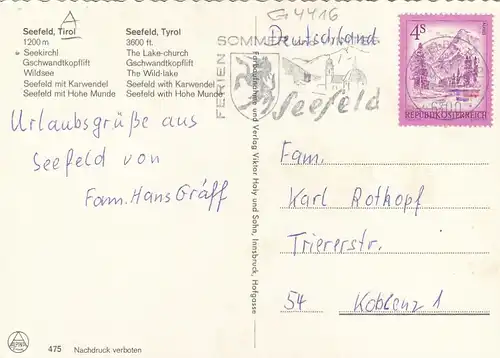 G 4416
A
Seefeld, Tirol
1200 m
Seekirchl
Gschwandtkopflift
Wildsee
Seefeld mit Karwendel
Seefeld mit Hohe Munde
Seefeld, Tyrol
3600 ft.
The Lake-church
Gschwandtkopflift
The Wild-lake
Seefeld with Karwendel
Seefeld with Hohe Munde
Urlaubsgrüße aus
Seefeld von
Fam. Hans Gräff
475 Nachdruck verboten
und Verlag Viktor Holy und Sohn, Innsbruck, Hofgasse
Deutschland
FERIEN
SOMMER
Seefeld
4S
REPUBLIK ÖSTERREICH
Fam.
Karl Rothopf
Triererstr.
54 Koblenz 1